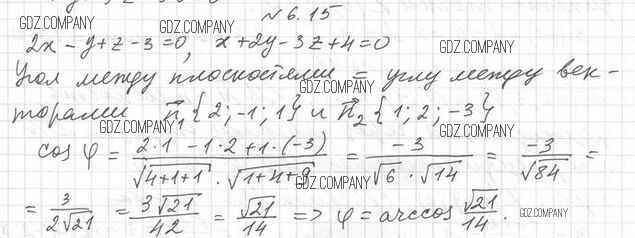 № 6.15
GDZ.COMPANY GDZ.COMPANY
2x - y + z - 3 = 0, x + 2y - 3z + 4 = 0
GDZ.COMPANY
Угол между плоскостями = углу между век-
GDZ.COMPANY
торами n⃗₁ {2; -1; 1} и n⃗₂ {1; 2; -3}
GDZ.COMPANY GDZ.COMPANY
cos φ = (2·1 - 1·2 + 1·(-3)) / (√(4+1+1) · √(1+4+9)) = -3 / (√6 · √14) = -3 / √84 =
GDZ.COMPANY
= 3 / (2√21) = 3√21 / 42 = √21 / 14 => φ = arccos √21 / 14.
GDZ.COMPANY GDZ.COMPANY